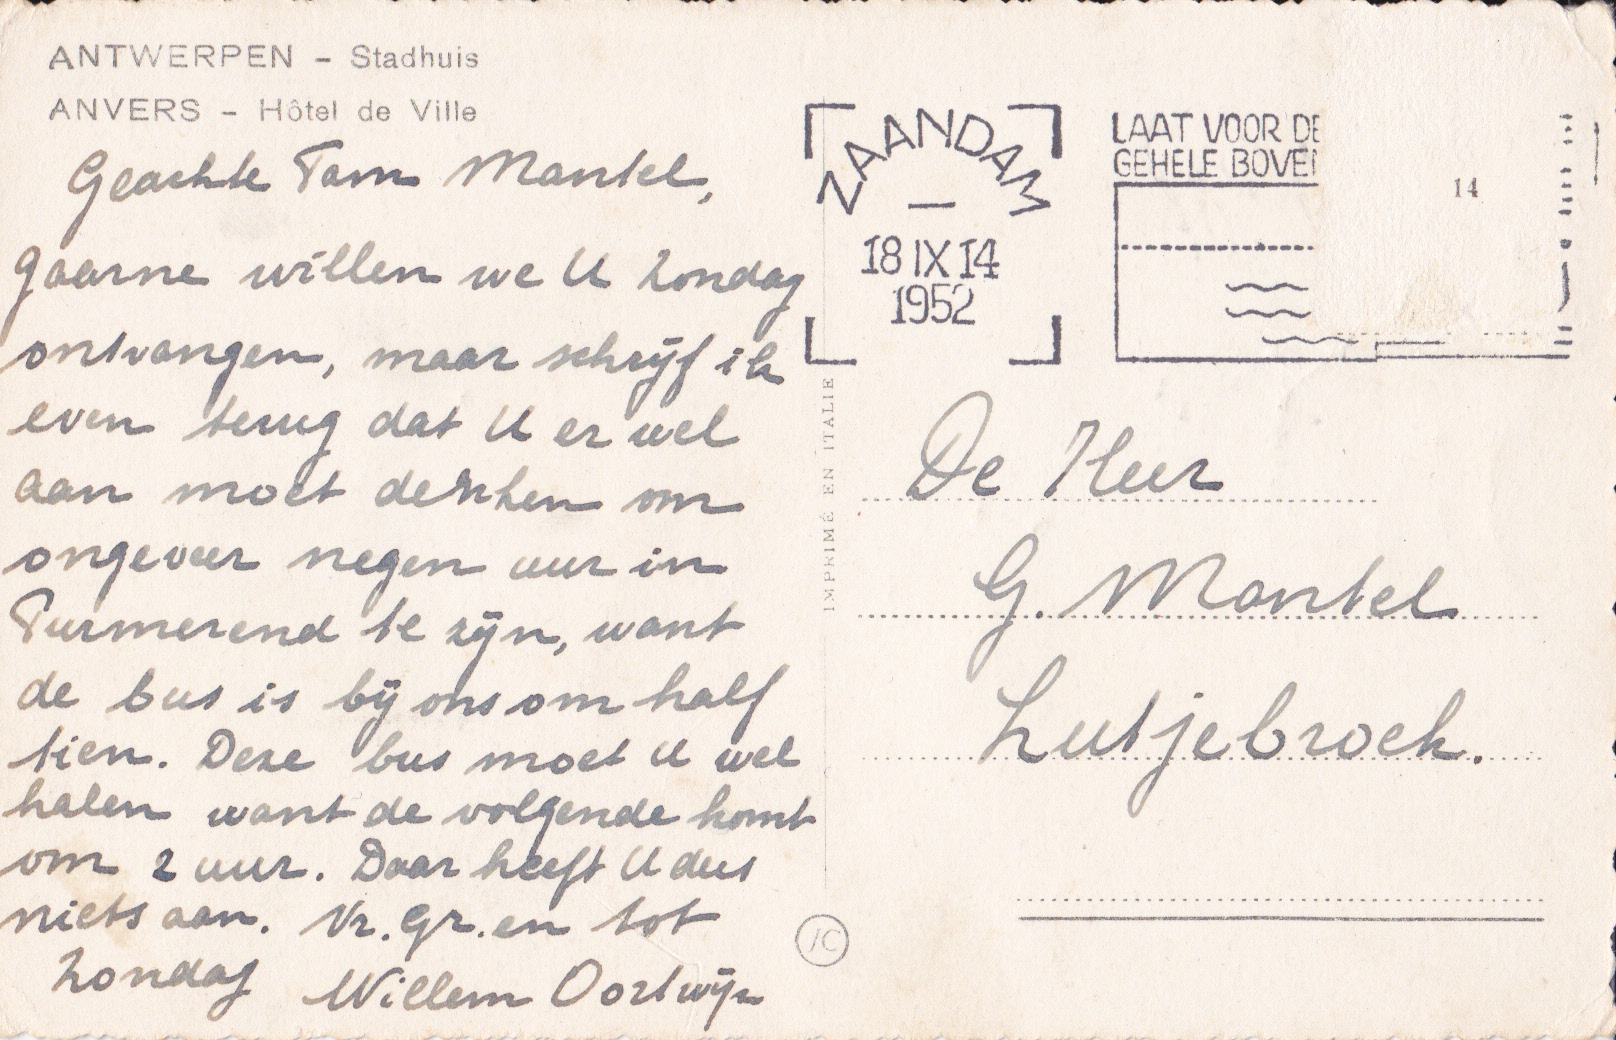 ANTWERPEN – Stadhuis
ANVERS – Hôtel de Ville
Geachte Fam Mantel,
Gaarne willen we U Zondag
ontvangen, maar schrijf ik
even terug dat U er wel
aan moet denken om
ongeveer negen uur in
Purmerend te zijn, want
de bus is bij ons om half
tien. Deze bus moet U wel
halen want de volgende komt
om 2 uur. Daar heeft U dus
niets aan. Vr. Gr. en tot
Zondag Willem Oostwijn
ZAANDAM
18 IX 14
1952
LAAT VOOR DE
GEHELE BOVE
14
IMPRIMÉ EN ITALIE
De Heer
G. Mantel
Lutjebroek.